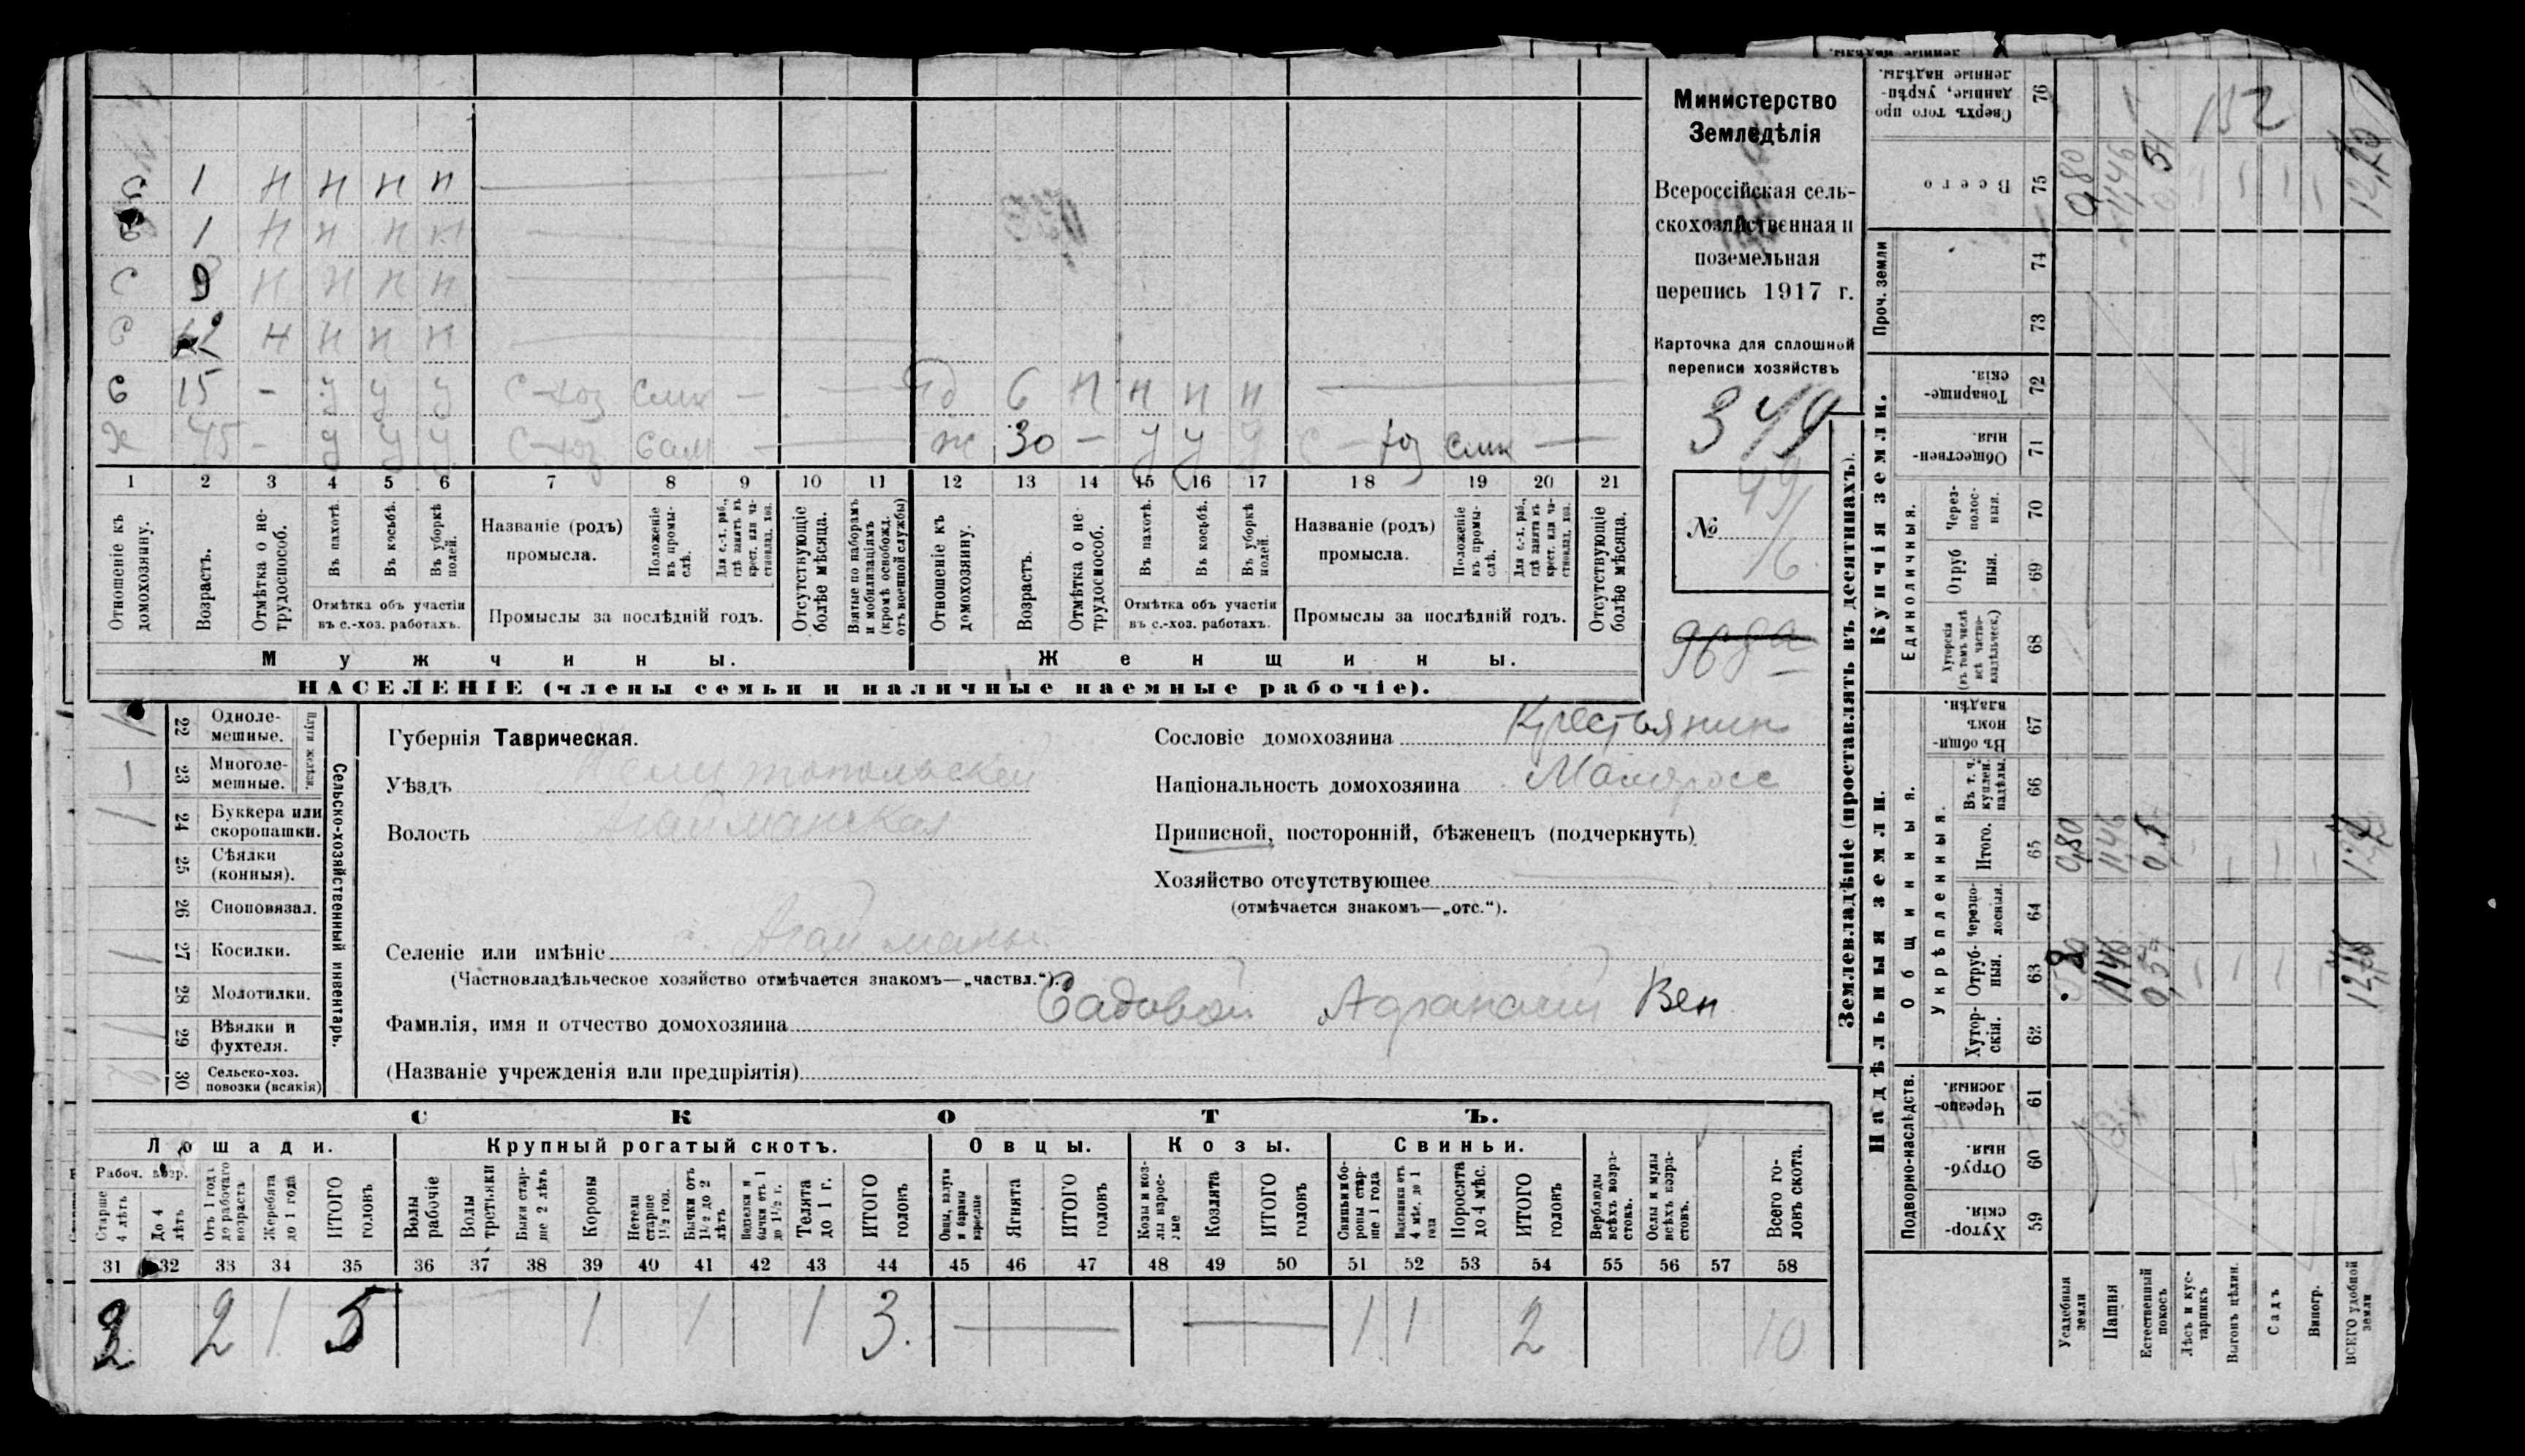 Министерство
Земледѣлія
Всероссійская сель-
скохозяйственная и
поземельная
перепись 1917 г.
Карточка для сплошной
переписи хозяйствъ
349
№ 49/6
С 1 Н Н Н Н
С 1 Н Н Н Н
С 9 Н Н Н Н
С Н Н Н Н
С 15 - у у у С-хоз слж - — Д 6 Н Н Н Н —
Х 45 - у у у С-хоз сам - — ж 30 - у у у С-хоз слж —
1 2 3 4 5 6 7 8 9 10 11 12 13 14 15 16 17 18 19 20 21
Отношеніе къ домохозяину.
Возрастъ.
Отмѣтка о не-трудоспособ.
Въ пахотѣ.
Въ косьбѣ.
Въ уборкѣ полей.
Отмѣтка объ участіи въ с.-хоз. работахъ.
Названіе (родъ) промысла.
Положеніе въ промы-слѣ.
Для с.-х. раб., гдѣ занятъ въ крест. или ча-стновлад. хоз.
Промыслы за послѣдній годъ.
Отсутствующіе болѣе мѣсяца.
Взятые по наборамъ и мобилизаціямъ (кромѣ освобожд. отъ военной службы)
Отношеніе къ домохозяину.
Возрастъ.
Отмѣтка о не-трудоспособ.
Въ пахотѣ.
Въ косьбѣ.
Въ уборкѣ полей.
Отмѣтка объ участіи въ с.-хоз. работахъ.
Названіе (родъ) промысла.
Положеніе въ промы-слѣ.
Для с.-х. раб., гдѣ занята въ крест. или ча-стновлад. хоз.
Промыслы за послѣдній годъ.
Отсутствующіе болѣе мѣсяца.
Мужчины. Женщины.
НАСЕЛЕНІЕ (члены семьи и наличные наемные рабочіе).
Сельско-хозяйственный инвентарь.
Плуги желѣзн.
22 Одноле-мешные.
1 23 Многоле-мешные.
1 24 Буккера или скоропашки.
25 Сѣялки (конныя).
26 Сноповязал.
1 27 Косилки.
28 Молотилки.
1 29 Вѣялки и фухтеля.
30 Сельско-хоз. повозки (всякія)
Губернія Таврическая.
Уѣздъ Мелитопольский
Волость Агайманская
Селеніе или имѣніе с. Агайманы
(Частновладѣльческое хозяйство отмѣчается знакомъ—„частвл.“).
Фамилія, имя и отчество домохозяина Садовой Афанасий Вен
(Названіе учрежденія или предпріятія)
Сословіе домохозяина Крестьянин
Національность домохозяина Малоросс
Приписной, посторонній, бѣженецъ (подчеркнуть)
Хозяйство отсутствующее
(отмѣчается знакомъ—„отс.“).
СКОТЪ.
Лошади. Крупный рогатый скотъ. Овцы. Козы. Свиньи.
Рабоч. возр.
Старше 4 лѣтъ
До 4 лѣтъ
Отъ 1 года до рабочаго возраста
Жеребята до 1 года
ИТОГО головъ
Волы рабочіе
Волы третьяки
Быки стар-ше 2 лѣтъ
Коровы
Нетели старше 1½ год.
Бычки отъ 1½ до 2 лѣтъ
Подтелки и бычки отъ 1 до 1½ г.
Телята до 1 г.
ИТОГО головъ
Овцы, валухи и бараны взрослые
Ягнята
ИТОГО головъ
Козы и коз-лы взрос-лые
Козлята
ИТОГО головъ
Свиньи и бо-ровы стар-ше 1 года
Подсвинки отъ 4 мѣс. до 1 года
Поросята до 4 мѣс.
ИТОГО головъ
Верблюды всѣхъ возра-стовъ.
Ослы и мулы всѣхъ возра-стовъ.
Всего го-ловъ скота.
31 32 33 34 35 36 37 38 39 40 41 42 43 44 45 46 47 48 49 50 51 52 53 54 55 56 57 58
2 2 1 5 1 1 1 3. — — 1 1 2 10
Землевладѣніе (проставлять въ десятинахъ).
Купчія земли.
Надѣльныя земли.
Проч. земли
Единоличныя.
Общинныя.
Укрѣпленныя.
Подворно-наслѣдств.
76 Сверхъ того про-данные, укрѣп-ленные надѣлы.
75 Всего 0,80 11,46 12,20
74
73
72 Товарище-скія.
71 Обществен-ныя.
70 Через-полос-ныя.
69 Отруб-ныя.
68 Хуторскія (въ томъ числѣ всѣ частно-владѣльческ.)
67 Въ общин-номъ владѣн.
66 Въ т. ч. куплен. надѣлы.
65 Итого. 0,80 11,46
64 Черезпо-лосныя.
63 Отруб-ныя. 11,46
62 Хутор-скія.
61 Черезпо-лосныя.
60 Отруб-ныя.
59 Хутор-скія.
Усадебныя земли
Пашня
Естественный покосъ
Лѣсъ и кус-тарникъ
Выгонъ цѣлин.
Садъ
Виногр.
ВСЕГО удобной земли